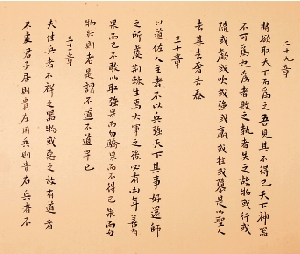 二十九章
將欲取天下而為之吾見其不得已天下神器
不可為也為者敗之執者失之故物或行或
隨或歔或吹或強或羸或挫或隳是以聖人
去甚去奢去泰
三十章
以道佐人主者不以兵強天下其事好還師
之所處荊棘生焉大軍之後必有凶年善有
果而已不敢以取強果而勿果而不得已果而勿
物壯則老是謂不道不道早已
三十一章
夫佳兵者不祥之器物或惡之故有道者
不處君子居則貴左用兵則貴右兵者不